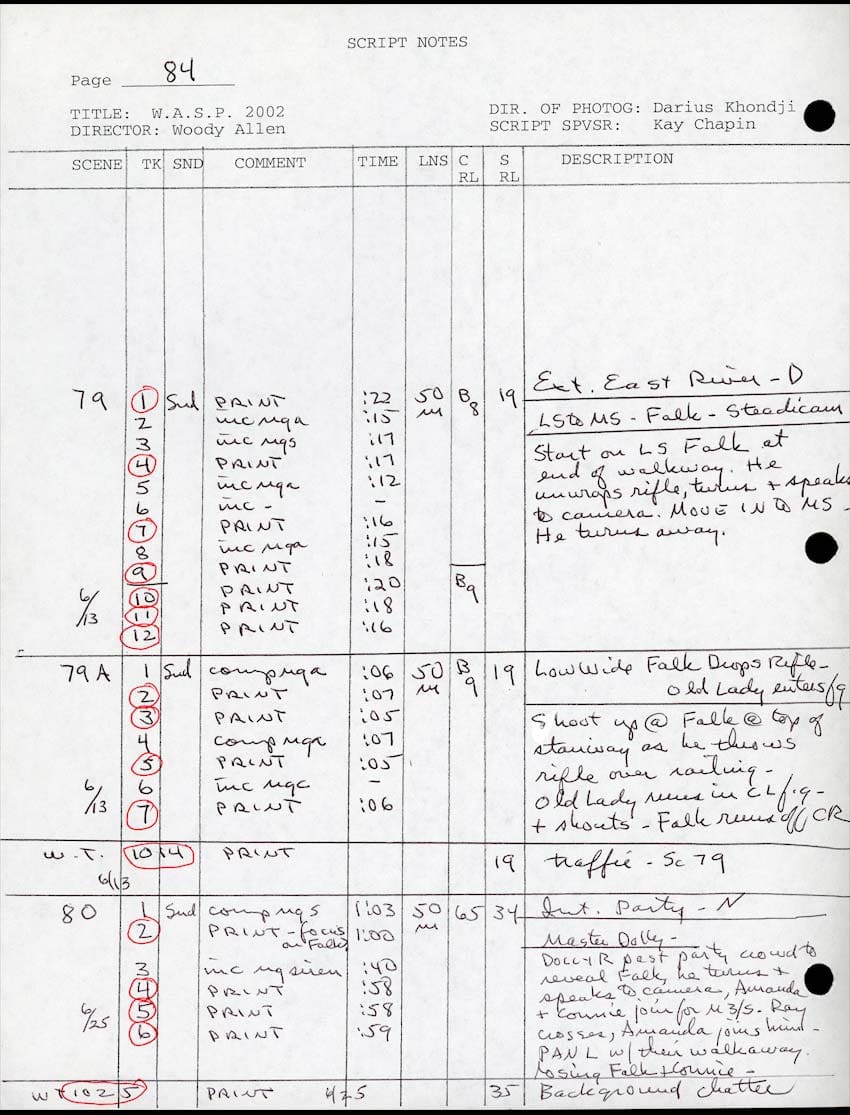 SCRIPT NOTES
Page 84
TITLE: W.A.S.P. 2002 DIR. OF PHOTOG: Darius Khondji
DIRECTOR: Woody Allen SCRIPT SPVSR: Kay Chapin
SCENE TK SND COMMENT TIME LNS C RL S RL DESCRIPTION
Ext. East River - D
79 1 Snd PRINT :22 50 m B8 19
2 inc nga :15 LS to MS - Falk - Steadicam
3 inc ngs :17 Start on LS Falk at
4 PRINT :17 end of walkway. He
5 inc nga :12 unwraps rifle, turns + speaks
6 inc - - to camera. MOVE IN TO MS -
7 PRINT :16 He turns away.
8 inc nga :15
9 PRINT :18
6/13 10 PRINT :20 B9
11 PRINT :18
12 PRINT :16
79A 1 Snd comp nga :06 50 m B9 19 Low Wide Falk Drops Rifle -
2 PRINT :07 Old Lady enters f/g
3 PRINT :05 Shoot up @ Falk @ top of
4 comp nga :07 stairway as he throws
5 PRINT :05 rifle over railing -
6/13 6 inc ngc - Old Lady runs in CL f.g -
7 PRINT :06 + shouts - Falk runs off CR
W.T. 1014 PRINT 19 traffic - Sc 79
6/13
80 1 Snd comp ngs 1:03 50 m 65 34 Int. Party - N
2 PRINT - focus on Falk 1:00 Master Dolly -
3 inc ng siren :40 DOLLY R past party crowd to
reveal Falk, he turns +
4 PRINT :58 speaks to camera, Amanda
6/25 5 PRINT :58 + Connie join for M 3/S. Ray
6 PRINT :59 crosses, Amanda joins him -
PAN L w/ their walkaway.
losing Falk + Connie -
WT 1025 PRINT 35 Background chatter